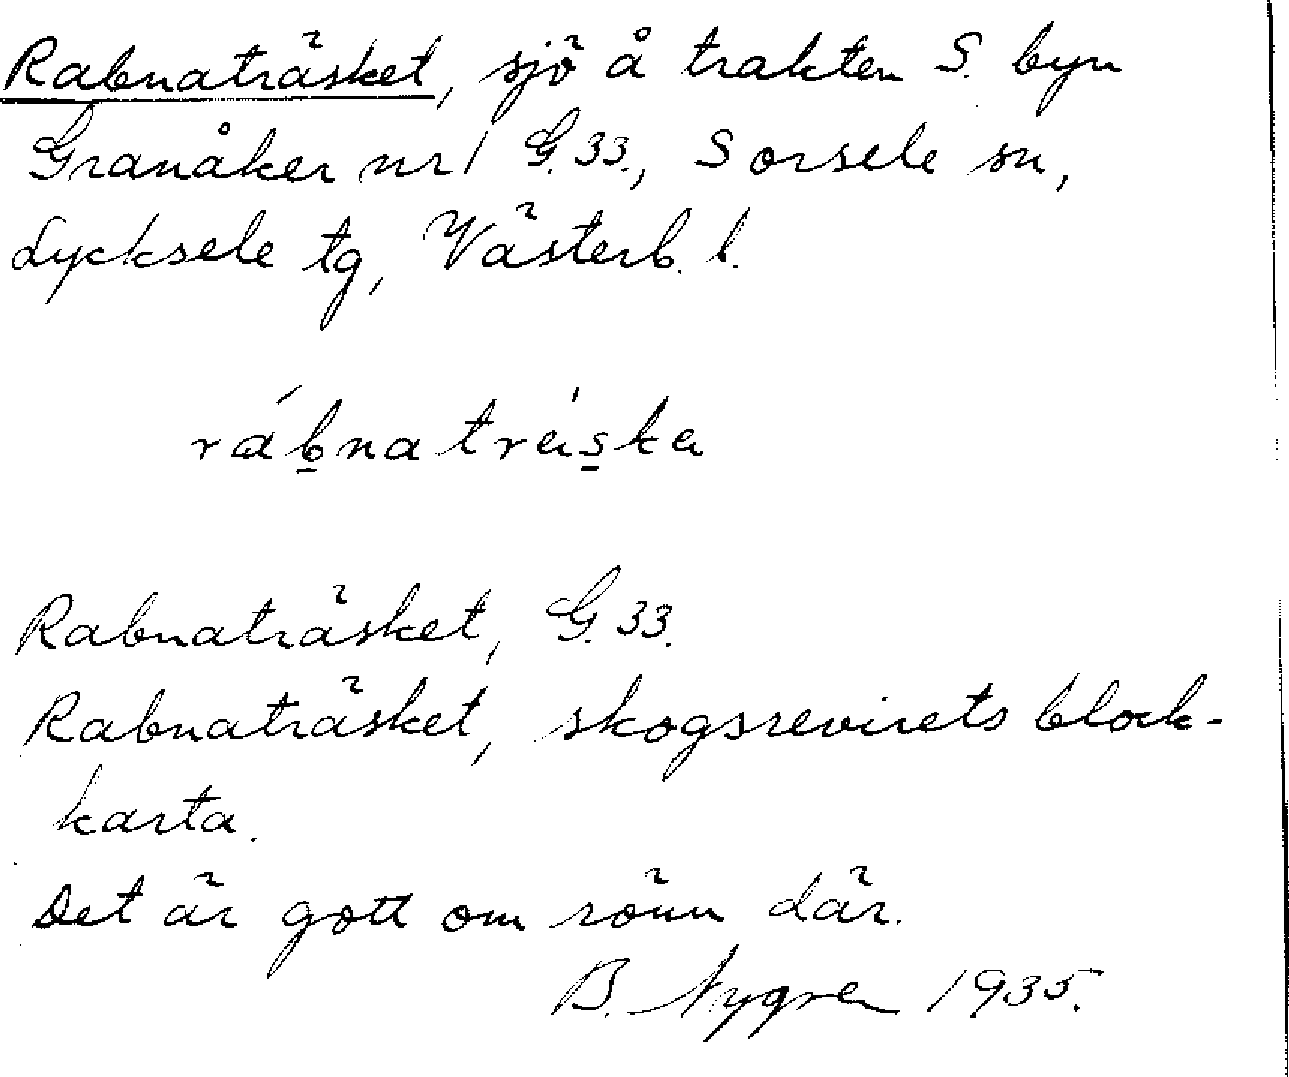 Rabnaträsket, sjö å trakten S. byn
Granåker nr 1 G.33., Sorsele sn,
Lycksele tg, Västerb. l.
rábnatrǽska
Rabnaträsket, G.33.
Rabnaträsket, skogsrevirets block-
karta.
Det är gott om rönn där.
B. Nygren 1935.